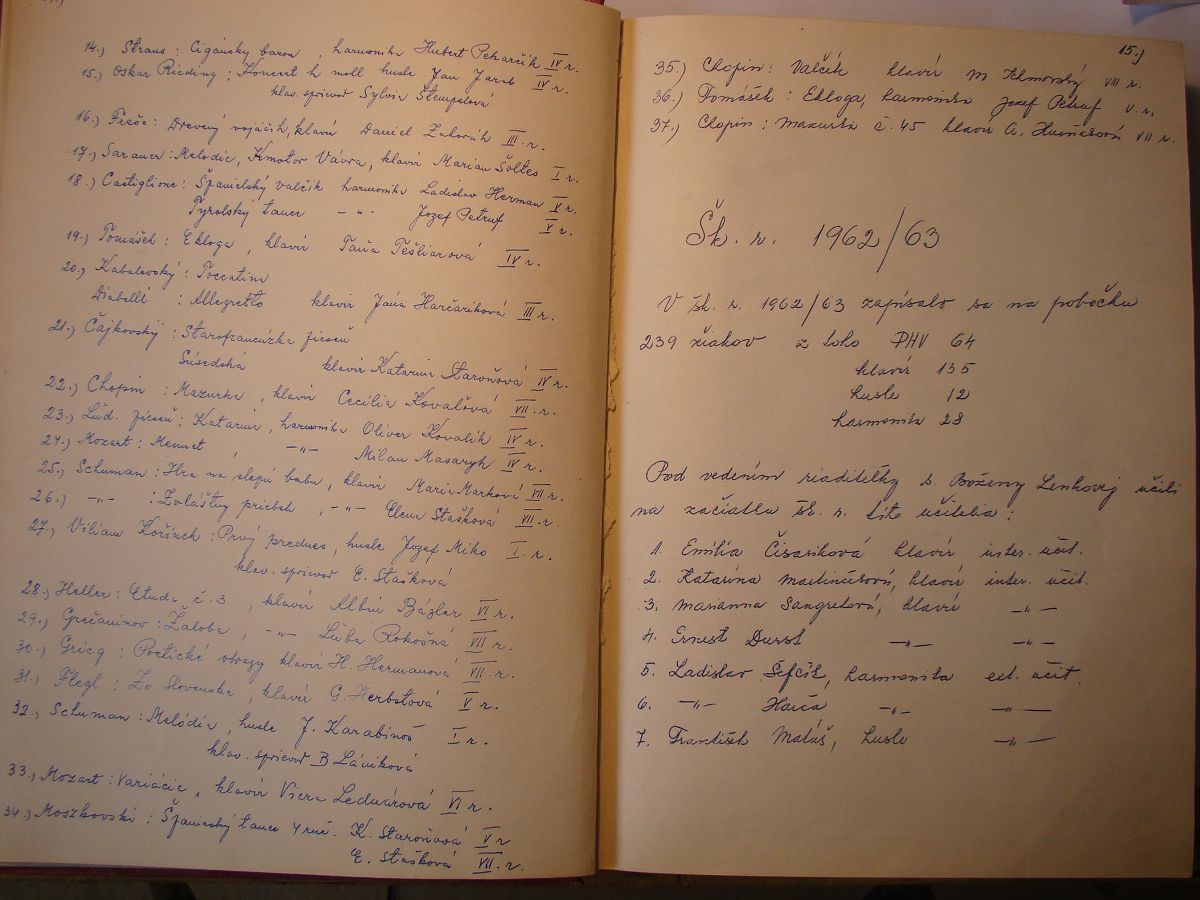 14.) Straus : Cigánsky baron , harmonika Hubert Pekarčík IV r.
15.) Oskar Rieding : Koncert h moll husle Jan Jarab IV r.
klav. sprievod Sylvia Štempelová
16.) Frešo : Drevený vojáčik, klavír Daniel Zahorák III. r.
17.) Sarauer : Melodie, Kmotor Vávra, klavír Marian Šoltes I r.
18.) Castiglione : Španielský valčík harmonika Ladislav Herman V r.
Tyrolský tanec — „ — Jozef Petruf V r.
19.) Tomášek : Ekloga , klavír Taňa Tešliarová IV r.
20.) Kabalevský : Toccatina
Diabelli : Allegretto klavír Jana Harčariková III r.
21.) Čajkovský : Starofrancúzka pieseň
Súsedská klavír Katarina Staroňová IV r.
22.) Chopin : Mazurka , klavír Cecilia Kovaľová VII. r.
23.) Ľud. pieseň : Katarina , harmonika Oliver Kovalik IV r.
24.) Mozart : Menuet , — „ — Milan Masaryk IV r.
25.) Schuman : Hra na slepú babu , klavír Marie Marková VII r.
26.) — „ — : Zvláštny priebeh , — „ — Elena Stašková VII r.
27.) Viliam Kořínek : Prvý prednes , husle Jozef Miko I. r.
klav. sprievod E. Stašková
28.) Heller : Etuda č. 3 , klavír Albin Bázler VI r.
29.) Grečaninov : Žaloba , — „ — Ľuba Rokošná VII r.
30.) Grieg : Poetické obrazy klavír H. Hermanová VII. r.
31.) Flegl : Zo Slovenska , klavír G. Herbstová V r.
32.) Schuman : Melódia , husle J. Karabinoš I r.
klav. sprievod B Lániková
33.) Mozart : Variácie , klavír Viera Lednárová VI r.
34.) Moszkovski : Španielský tanec 4 ruč. K. Staroňová V r
E. Stašková VII. r.
15.)
35.) Chopin : Valčík klavír M. Klmovský VIII r.
36.) Tomášek : Ekloga, harmonika Jozef Petruf V. r.
37.) Chopin : Mazurka č. 45 klavír A. VII r.
Šk. r. 1962/63
V šk. r. 1962/63 zapísalo sa na pobočku
239 žiakov z toho PHV 64
klavír 135
husle 12
harmonika 28
Pod vedením riaditeľky s. Boženy Lenkovej učili
na začiatku šk. r. títo učitelia :
1. Emília Čisariková klavír inter. učit.
2. Katarína Martinčesová, klavír inter. učit.
3. Marianna Sangretová, klavír — „ —
4. Ernest Durst — „ — — „ —
5. Ladislav Šefčík, harmonika ext. učit.
6. — „ — Harča — „ — — „ —
7. František Matúš, husle — „ —